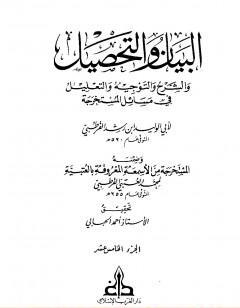 البيان والتحصيل
والشرح والتوجيه والتعليل
في مسائل المستخرجة
لأبي الوليد ابن رشد القرطبي
المتوفى عام ٥٢٠هـ
وضمنه
المستخرجة من الأسمعة المعروفة بالعتبية
لمحمد العتبي القرطبي
المتوفى عام ٢٥٥هـ
تحقيق
الأستاذ أحمد الحبابي
الجزء الخامس عشر
دار الغرب الإسلامي